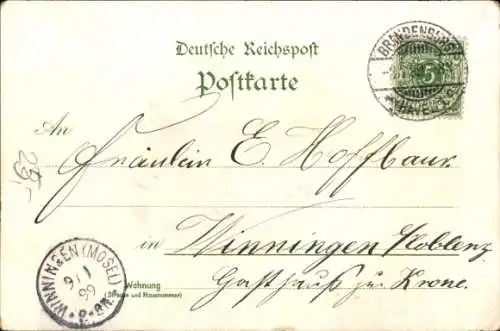 Deutsche Reichspost
Postkarte
BRANDENBURG
5
(HAVEL)
An
Fräulein E. Hoffbaur
in Winningen /Koblenz
Gasthaus zur Krone.
WINNINGEN (MOSEL)
9/1
99
8-9V.
Wohnung
(Strasse und Hausnummer)